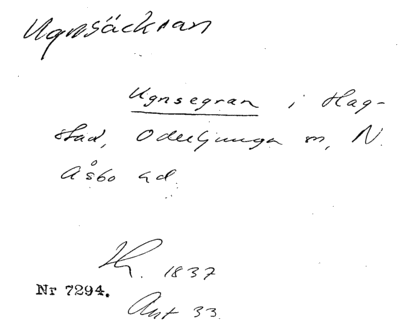 Ugnsäckran
Ugnsegran i Hag-
stad, Oderljunga m, N.
Åsbo hd.
1837
Nr 7294.
Ant 33.